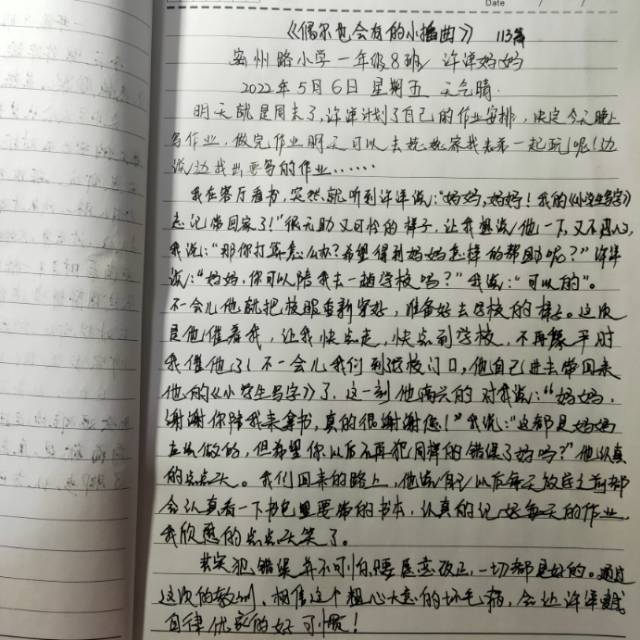 Date / /
《偶尔也会有的小插曲》 113篇
密州路小学一年级8班 许洋妈妈
2022年5月6日 星期五 天气晴
明天就是周末了,许洋计划了自己的作业安排,决定今天晚上
写作业,做完作业明天可以去姥姥家找弟弟一起玩呢!边
说边找出要写的作业……
我在客厅看书,突然就听到许洋说:“妈妈,妈妈!我的《小学生写字》
忘记带回家了!”很无助又可怜的样子,让我想说他一下,又不忍心,
我说:“那你打算怎么办?希望得到妈妈怎样的帮助呢?”许洋
说:“妈妈,你可以陪我去一趟学校吗?”我说:“可以的”。
不一会儿他就把校服重新穿好,准备好去学校的样子。这次
是他催着我,让我快点走,快点到学校,不再像平时
我催他了!不一会儿我们到学校门口,他自己进去带回来
他的《小学生写字》了,这一刻他高兴的对我说:“妈妈,
谢谢你陪我来拿书,真的很谢谢您!”我说:“这都是妈妈
应该做的,但希望你以后不再犯同样的错误了好吗?”他认真
的点点头。我们回来的路上,他说自己以后每天放学之前都
会认真看一下书包里要带的书本,认真的记好每天的作业,
我欣慰的点点头笑了。
其实犯错误并不可怕,只要愿意改正,一切都是好的。通过
这次的教训,相信这个粗心大意的坏毛病,会让许洋变成
自律优秀的好习惯!